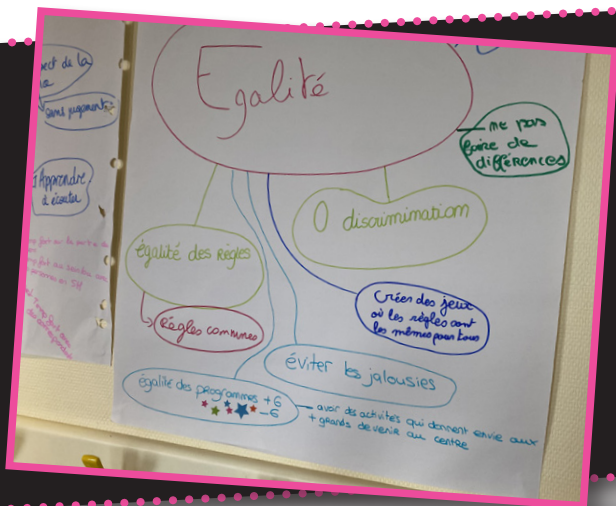 ect de la
sans jugement
Apprendre
à écouter
Egalité
ne pas
faire de
différences
0 discrimination
égalité des Règles
Règles communes
Créer des jeux
où les règles sont
les mêmes pour tous
éviter les jalousies
égalité des programmes +6
-6
avoir des activités qui donnent envie aux
+ grands de venir au centre